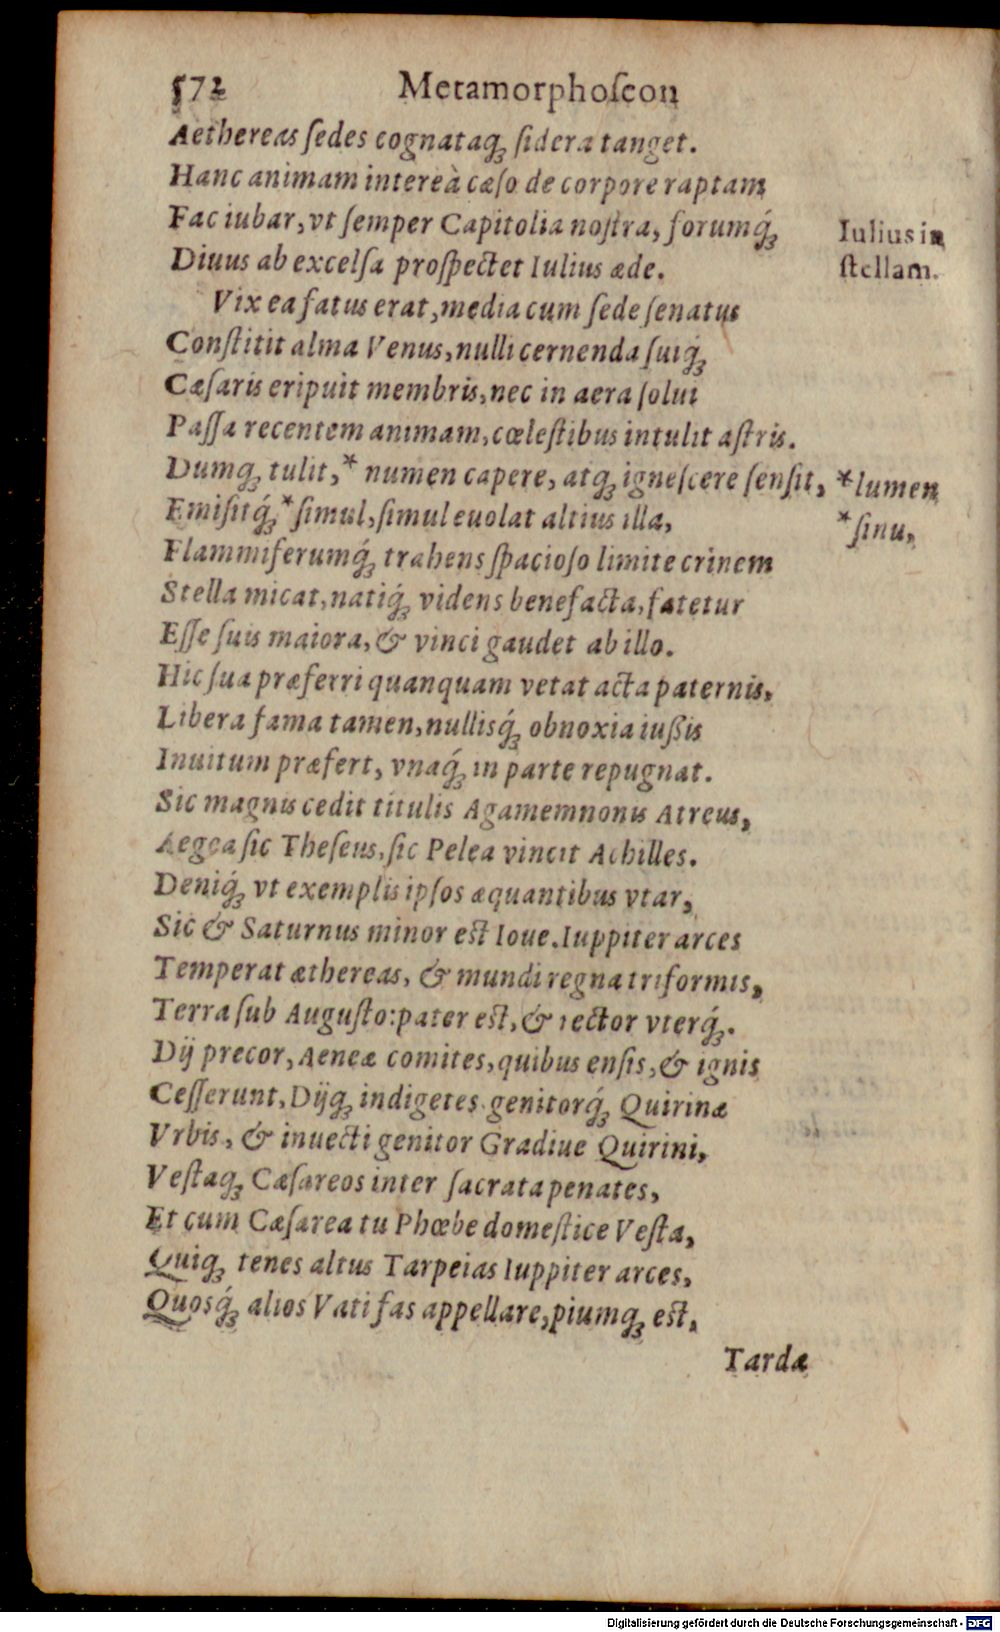 572 Metamorphoſeon
Aethereas ſedes cognataq́ꝫ ſidera tanget.
Hanc animam intereà cæſo de corpore raptam
Fac iubar, vt ſemper Capitolia noſtra, forumq́ꝫ
Iulius in
Diuus ab excelſa proſpectet Iulius æde.
ſtellam.
Vix ea fatus erat, media cum ſede ſenatus
Conſtitit alma Venus, nulli cernenda ſuiqꝫ
Cæſaris eripuit membris, nec in aera ſolui
Paſſa recentem animam, cœleſtibus intulit aſtris.
Dumqꝫ tulit, * numen capere, atqꝫ igneſcere ſenſit,
*lumen
Emiſitq́ꝫ *ſimul, ſimul euolat altius illa,
*ſinu,
Flammiferumq́ꝫ trahens ſpacioſo limite crinem
Stella micat, natiq́ꝫ videns benefacta, fatetur
Eſſe ſuis maiora, & vinci gaudet ab illo.
Hic ſua præferri quanquam vetat acta paternis,
Libera fama tamen, nullisq́ꝫ obnoxia iußis
Inuitum præfert, vnaq́ꝫ in parte repugnat.
Sic magnis cedit titulis Agamemnonis Atreus,
Aegea ſic Theſeus, ſic Pelea vincit Achilles.
Deniq́ꝫ vt exemplis ipſos æquantibus vtar,
Sic & Saturnus minor est Ioue. Iuppiter arces
Temperat æthereas, & mundi regna triformis,
Terra ſub Auguſto: pater est, & rector vterq́ꝫ.
Dij precor, Aeneæ comites, quibus enſis, & ignis
Ceſſerunt, Dijqꝫ indigetes genitorq́ꝫ Quirinæ
Vrbis, & inuecti genitor Gradiue Quirini,
Veſtaqꝫ Cæſareos inter ſacrata penates,
Et cum Cæſarea tu Phœbe domeſtice Veſta,
Quiqꝫ tenes altus Tarpeias Iuppiter arces,
Quosq́ꝫ alios Vati fas appellare, piumqꝫ est,
Tardæ
Digitalisierung gefördert durch die Deutsche Forschungsgemeinschaft - DFG